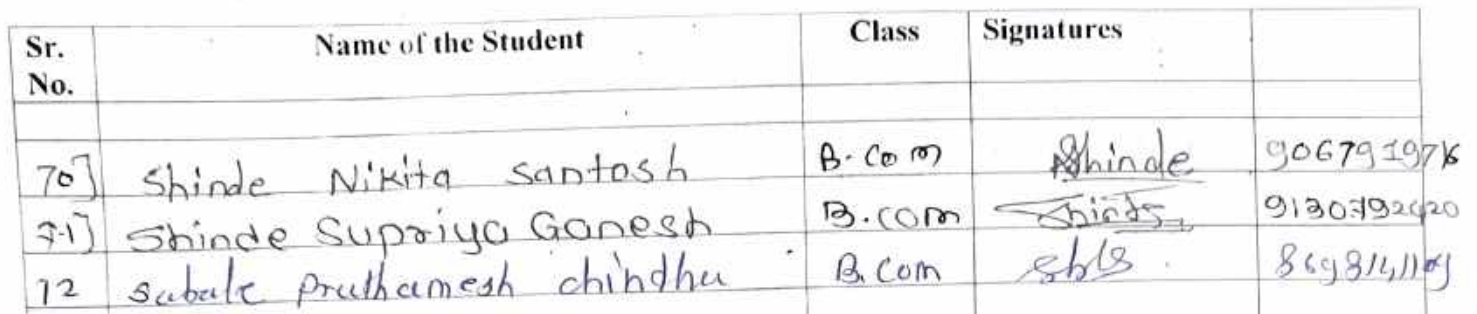 Sr. No. Name of the Student Class Signatures
70] Shinde Nikita Santosh B.Com Shinde
71] Shinde Supriya Ganesh B.com Shinde
72 Sabale Pruthamesh chindhu B.Com